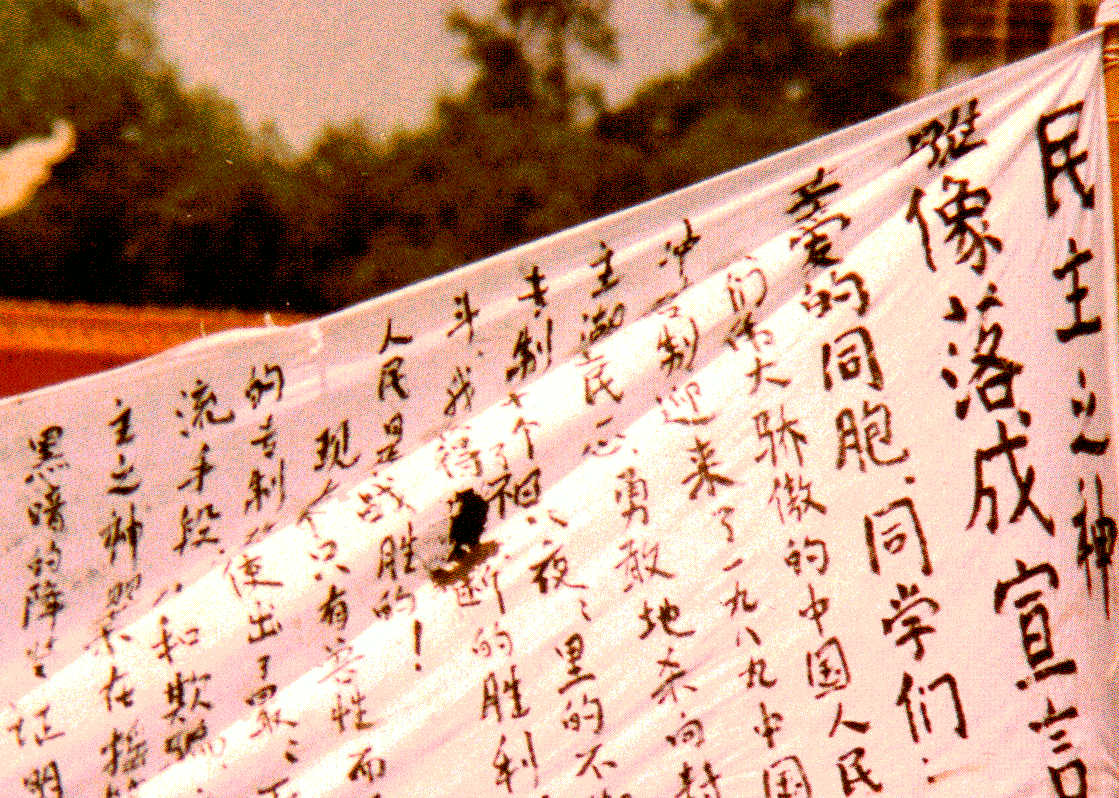 民主之神
雕像落成宣言
亲爱的同胞、同学们:
们伟大骄傲的中国人民
冲制迎来了一九八九中国
主潮民心勇敢地杀向封
专制十个日夜々里的不
斗.我得了断的胜利
人民是战胜的!
现在只有兽性而
的专制使出了最々下
流手段.和欺骗
主之神在摇
黑暗的降证明